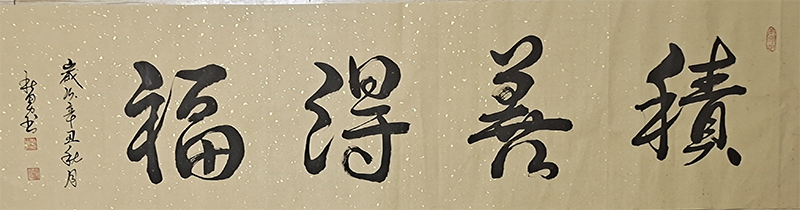 積善得福
歲次辛丑秋月